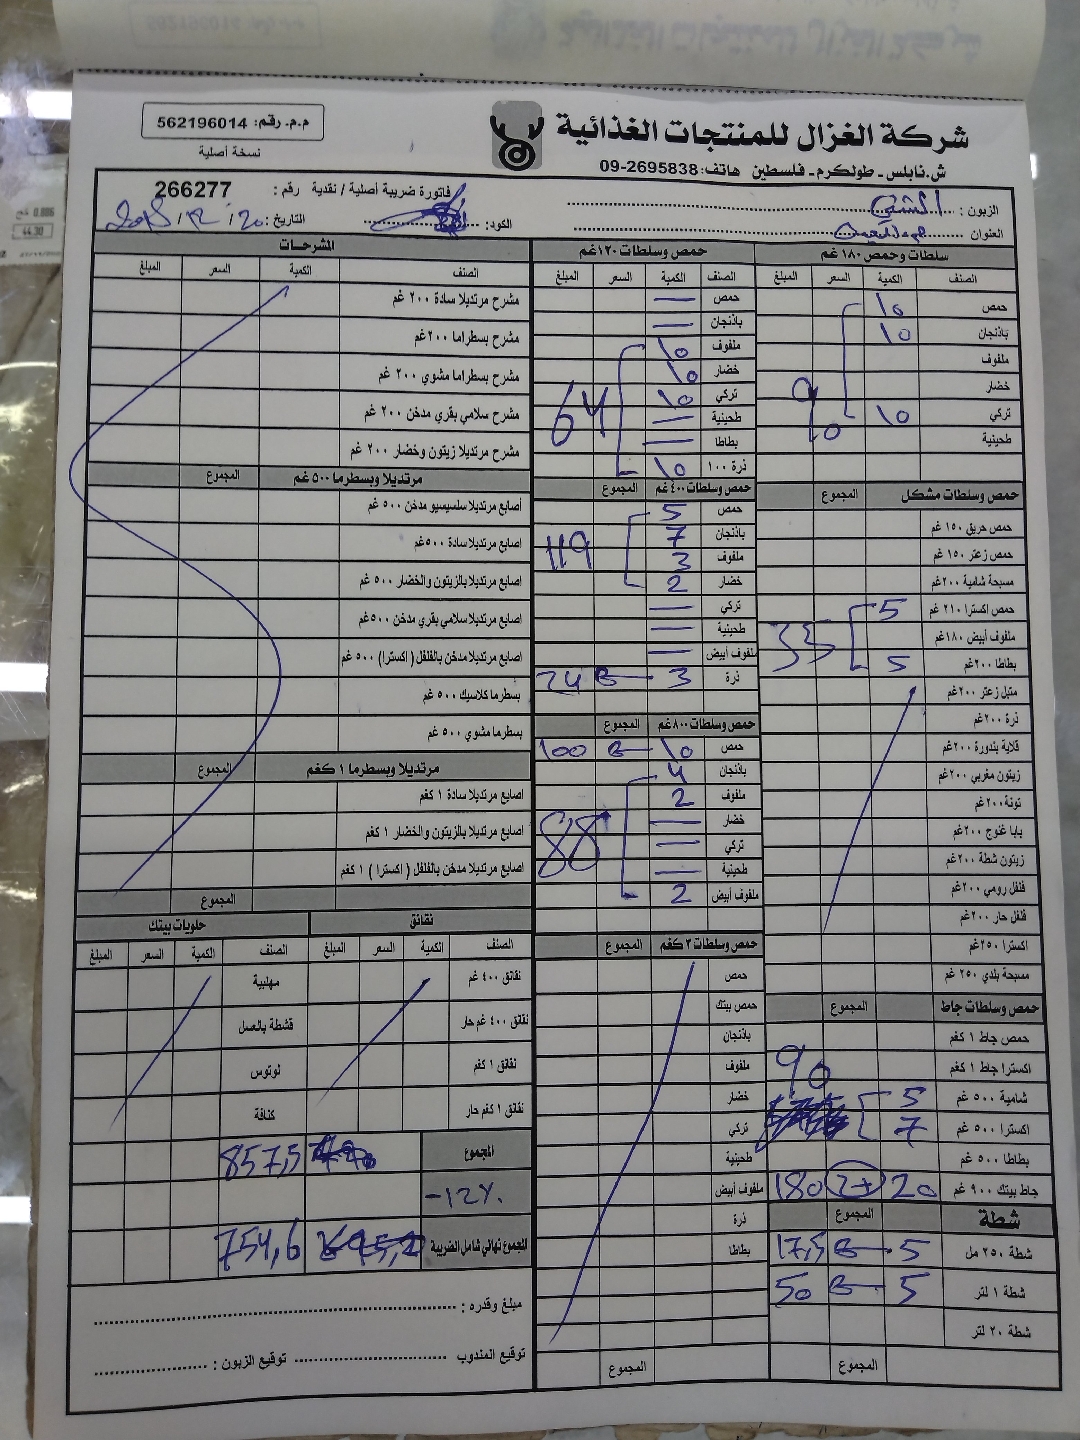 شركة الغزال للمنتجات الغذائية
ش.نابلس - طولكرم - فلسطين هاتف: 09-2695838
م.م. رقم: 562196014
نسخة أصلية
فاتورة ضريبة أصلية / نقدية رقم : 266277
الزبون :
العنوان
الكود:
التاريخ: 20 / 12 /
سلطات وحمص ١٨٠ غم
الصنف الكمية السعر المبلغ
حمص 10
باذنجان 10
ملفوف
خضار
90
تركي 10
طحينية
حمص وسلطات مشكل المجموع
حمص حريق ١٥٠ غم
حمص زعتر ١٥٠ غم
مسبحة شامية ٢٠٠غم
حمص اكسترا ٢١٠ غم 5
ملفوف أبيض ١٨٠غم 35
بطاطا ٢٠٠غم 5
متبل زعتر ٢٠٠غم
ذرة ٢٠٠غم
قلاية بندورة ٢٠٠غم
زيتون مغربي ٢٠٠غم
تونة ٢٠٠غم
بابا غنوج ٢٠٠غم
زيتون شطة ٢٠٠غم
فلفل رومي ٢٠٠غم
فلفل حار ٢٠٠غم
اكسترا ٢٥٠غم
مسبحة بلدي ٢٥٠ غم
حمص وسلطات جاط المجموع
حمص جاط ١ كغم
اكسترا جاط ١ كغم 90
شامية ٥٠٠ غم 5
اكسترا ٥٠٠ غم 7
بطاطا ٥٠٠ غم
جاط بيتك ٩٠٠ غم 20 2+ 180
شطة المجموع
شطة ٢٥٠ مل 5 17,5
شطة ١ لتر 5 50
شطة ٢٠ لتر
المجموع
حمص وسلطات ١٢٠غم
الصنف الكمية السعر المبلغ
حمص —
باذنجان —
ملفوف 10
خضار 10
تركي 10 64
طحينية —
بطاطا —
ذرة ١٠٠ 10
حمص وسلطات ٤٠٠ غم المجموع
حمص 5
باذنجان 7 119
ملفوف 3
خضار 2
تركي —
طحينية —
ملفوف أبيض —
ذرة 3 24
حمص وسلطات ٨٠٠ غم المجموع
حمص 10 100
باذنجان 4
ملفوف 2
خضار — 88
تركي —
طحينية —
ملفوف أبيض 2
حمص وسلطات ٣ كغم المجموع
حمص
حمص بيتك
باذنجان
ملفوف
خضار
تركي
طحينية
ملفوف أبيض
ذرة
بطاطا
المجموع
المشرحات
الصنف الكمية السعر المبلغ
مشرح مرتديلا سادة ٢٠٠ غم
مشرح بسطراما ٢٠٠غم
مشرح بسطراما مشوي ٢٠٠ غم
مشرح سلامي بقري مدخن ٢٠٠ غم
مشرح مرتديلا زيتون وخضار ٢٠٠ غم
مرتديلا وبسطرما ٥٠٠ غم المجموع
أصابع مرتديلا سلسيسيو مدخن ٥٠٠ غم
اصابع مرتديلا سادة ٥٠٠غم
اصابع مرتديلا بالزيتون والخضار ٥٠٠ غم
اصابع مرتديلا سلامي بقري مدخن ٥٠٠غم
اصابع مرتديلا مدخن بالفلفل ( اكسترا) ٥٠٠ غم
بسطرما كلاسيك ٥٠٠ غم
بسطرما مشوي ٥٠٠ غم
مرتديلا وبسطرما ١ كغم المجموع
اصابع مرتديلا سادة ١ كغم
اصابع مرتديلا بالزيتون والخضار ١ كغم
اصابع مرتديلا مدخن بالفلفل ( اكسترا ) ١ كغم
المجموع
نقانق
الصنف الكمية السعر المبلغ
نقانق ٤٠٠ غم
نقانق ٤٠٠ غم حار
نقانق ١ كغم
نقانق ١ كغم حار
حلويات بيتك
الصنف الكمية السعر المبلغ
مهلبية
قشطة بالعسل
لوتوس
كنافة
المجموع 857,5
-12%
المجموع نهائي شامل الضريبة 695,2 754,6
مبلغ وقدره :
توقيع المندوب توقيع الزبون :